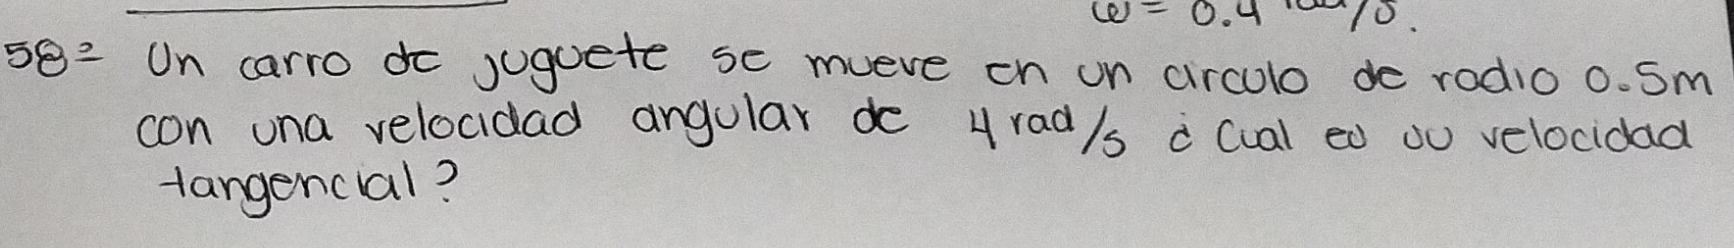 ω = 0.4 rad/s.
58= Un carro de juguete se mueve en un circulo de radio 0.5m
con una velocidad angular de 4 rad/s ¿Cual es su velocidad
tangencial?